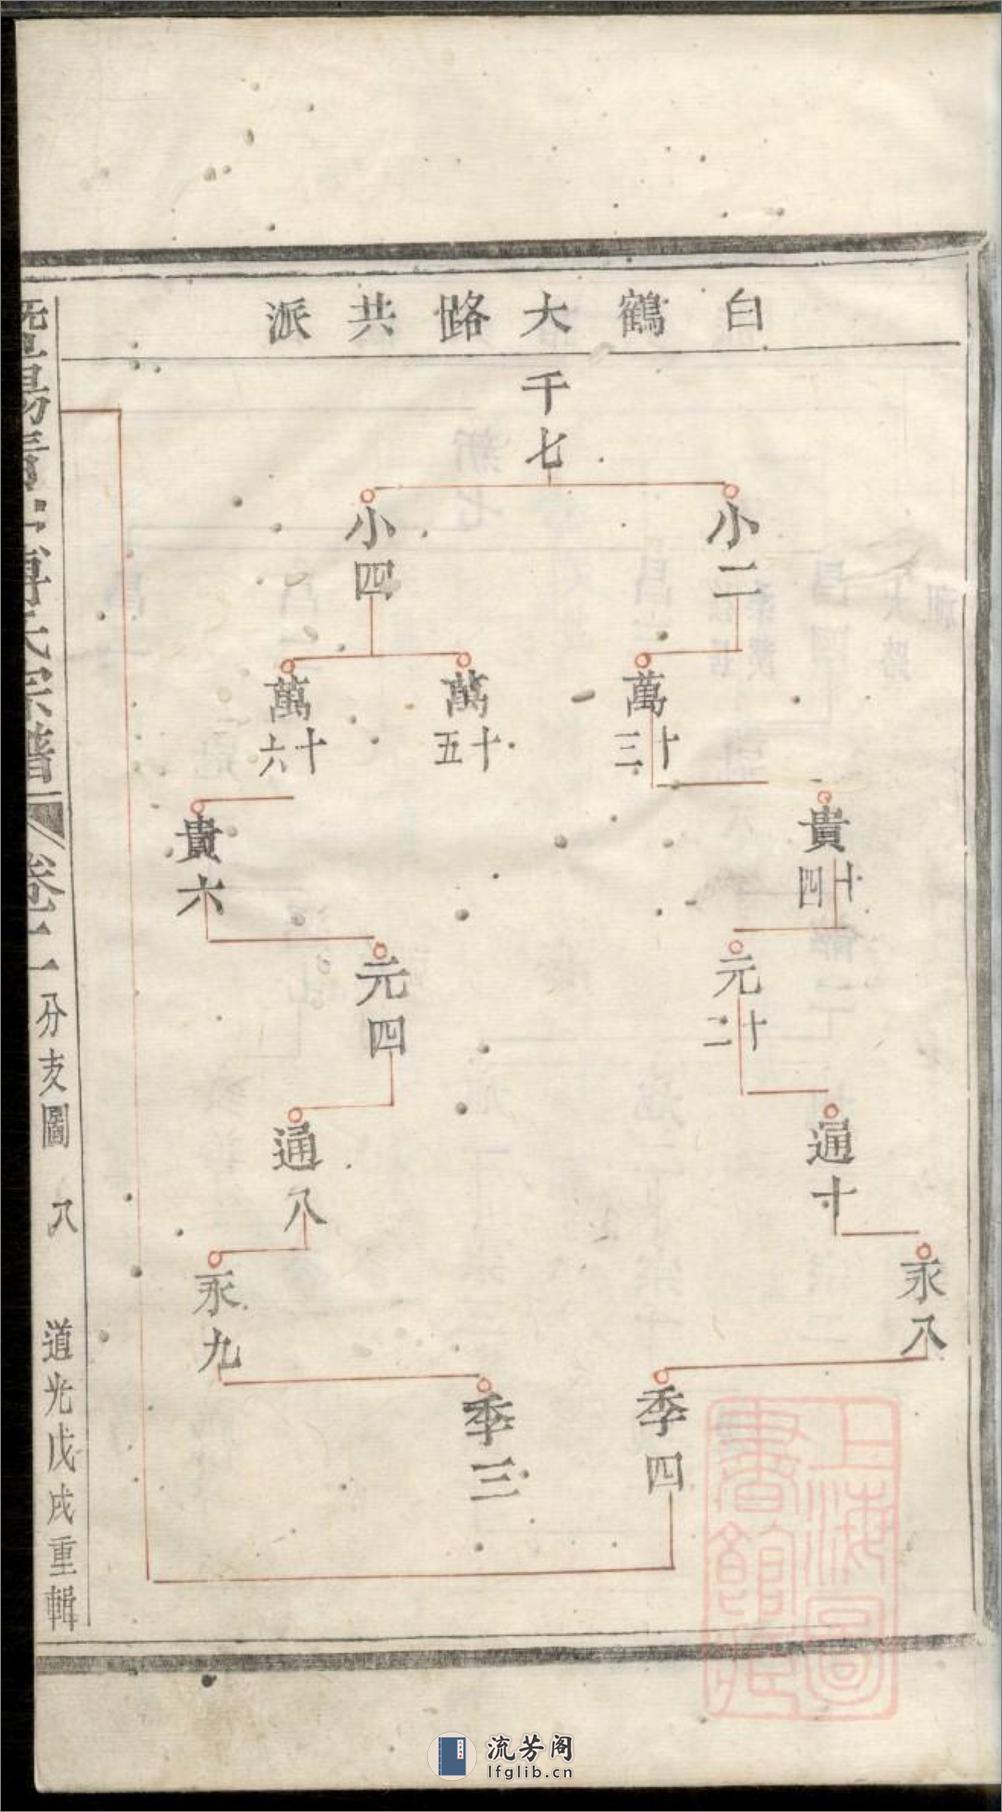 白鶴大路共派
千七
小二
小四
萬十三
萬十五
萬十六
貴十四
貴六
元十二
元四
通十
通八
永八
永九
季四
季三
宗譜
卷一
分支圖
八
道光戊戌重輯
上海圖
書館藏
流芳阁
lfglib.cn